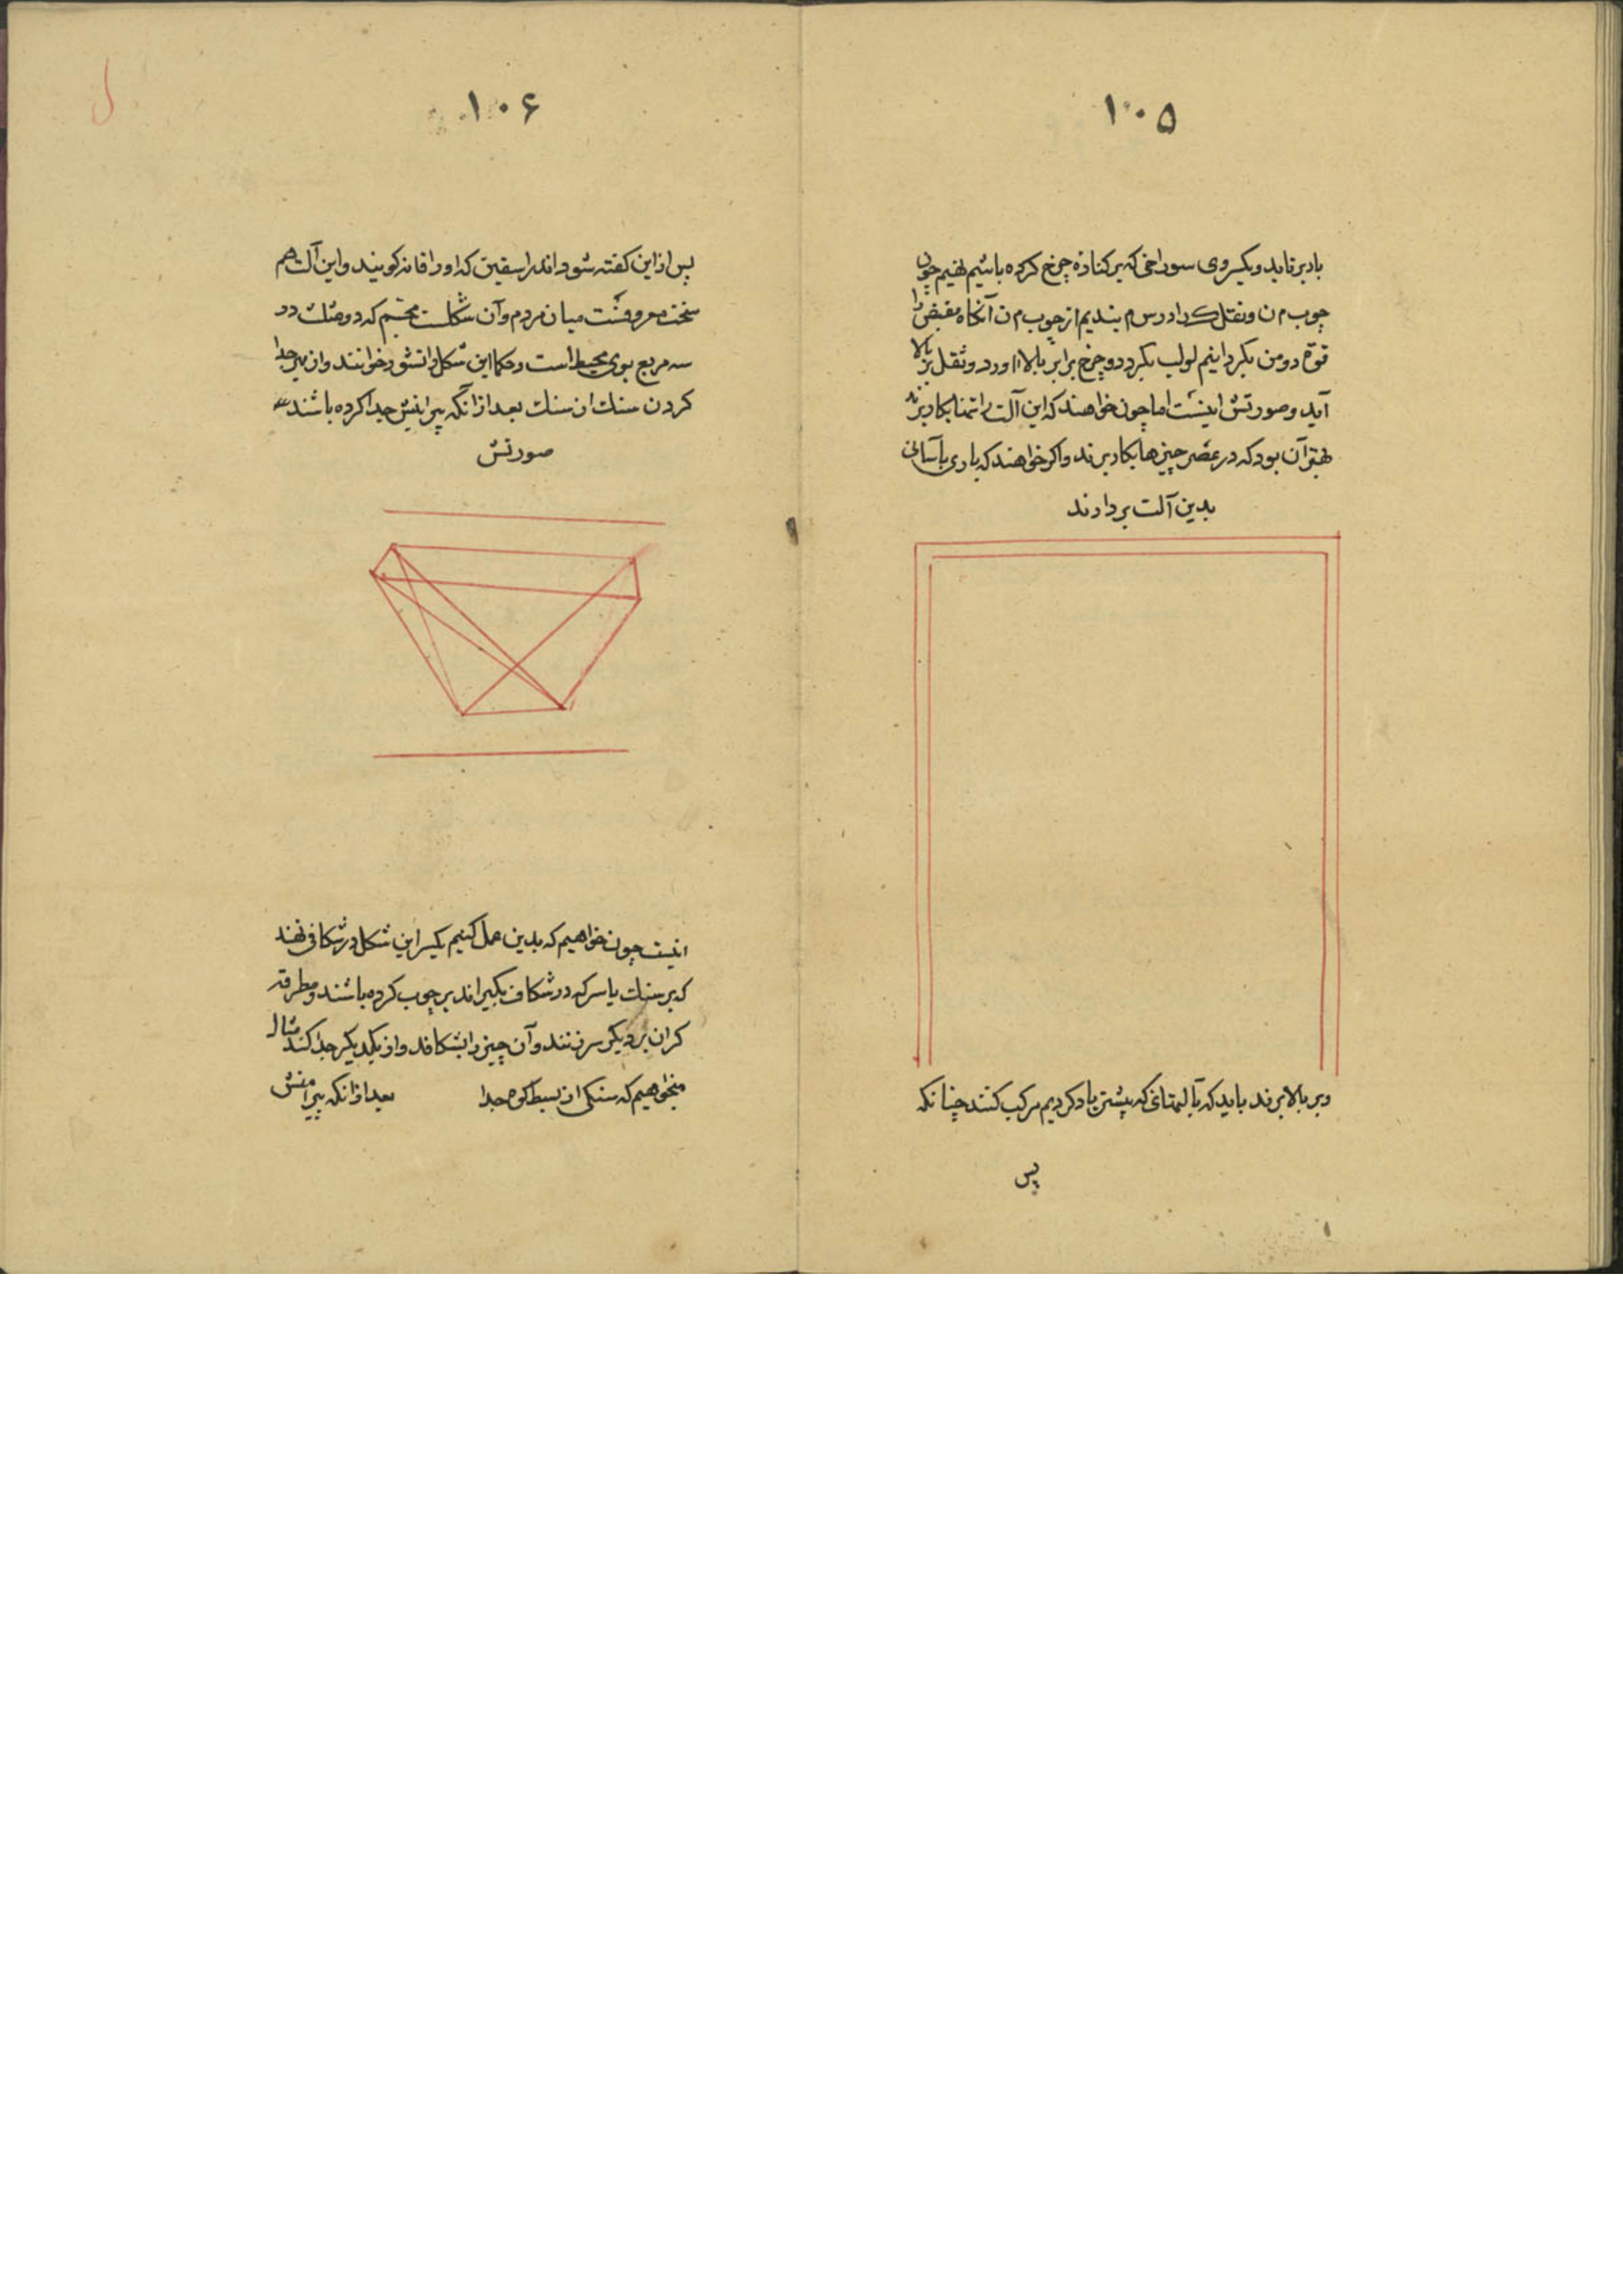 ۱۰۵
بار برتابد و یکسر وی سوراخی که بر کناره چرخ کرده باشیم نهیم چون
چوب م ن و ثقل ک را در س م بندیم از چوب م ن آنکاه مقبض را
قوة دو من بکردانیم لولب بکردد و چرخ برابر بالا اورد و ثقل بر بالا
آید و صورتش اینست اما چون خواهند که این آلت را تنها بکار برند
بهتر آن بود که در عصر چیزها بکار برند و اکر خواهند که باری بآسانی
بدین آلت بردارند
و بر بالا برند باید که بآلتهائی که پیشتر یاد کردیم مرکب کنند چنانکه
پس
۱۰۶
پس از این کفته شود اندر اسفین که او را فانه کویند و این آلت هم
سخت معروفست میان مردم و آن شکلست مجسم که دو مثلث و
سه مربع بوی محیط است و حکما این شکل را منشور خوانند و از بهر جدا
کردن سنك از سنك بعد از آنکه پیرامنش جدا کرده باشند
صورتش
اینست چون خواهیم که بدین عمل کنیم یکسر این شکل در شکافی نهند
که بر سنك یا سر که در شکاف بکیراند بر چوب کرده باشند و مطرقه
کران بر دیکر سر زنند و آن چیز را بشکافد و از یکدیکر جدا کند مثال
میخواهیم که سنکی از بسیط کوه جدا بعد از انکه پیرامنش